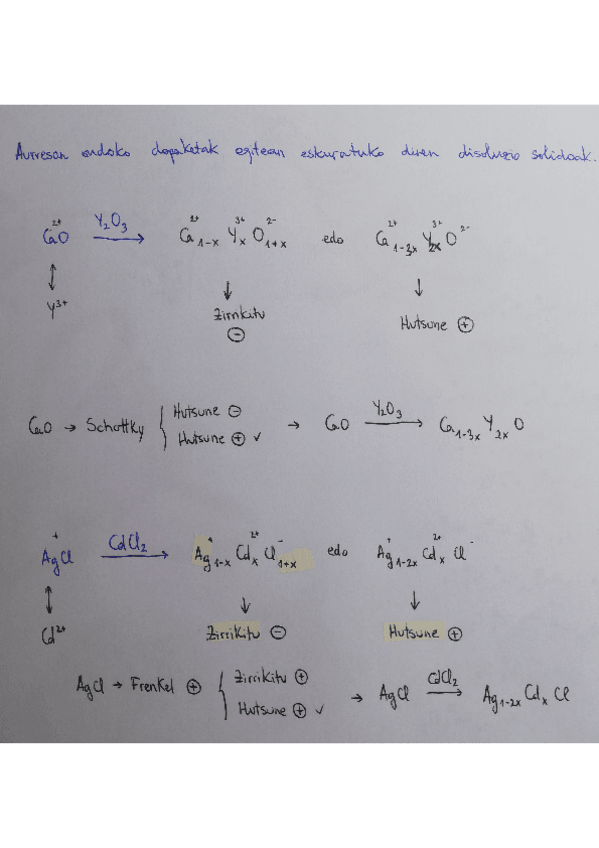 Aurresan ondoko dopaketak egitean eskuratuko diren disoluzio solidoak.
Ca²⁺O Y₂O₃ → Ca²⁺₁₋ₓ Y³⁺ₓ O²⁻₁₊ₓ edo Ca²⁺₁₋₃ₓ Y³⁺₂ₓ O²⁻
↕ ↓ ↓
Y³⁺ Zirrikitu ⊖ Hutsune ⊕
CaO → Schottky { Hutsune ⊖
Hutsune ⊕ ✓ → CaO Y₂O₃ → Ca₁₋₃ₓ Y₂ₓ O
Ag⁺Cl CdCl₂ → Ag⁺₁₋ₓ Cd²⁺ₓ Cl⁻₁₊ₓ edo Ag⁺₁₋₂ₓ Cd²⁺ₓ Cl⁻
↕ ↓ ↓
Cd²⁺ Zirrikitu ⊖ Hutsune ⊕
AgCl → Frenkel ⊕ { Zirrikitu ⊕
Hutsune ⊕ ✓ → AgCl CdCl₂ → Ag₁₋₂ₓ Cdₓ Cl